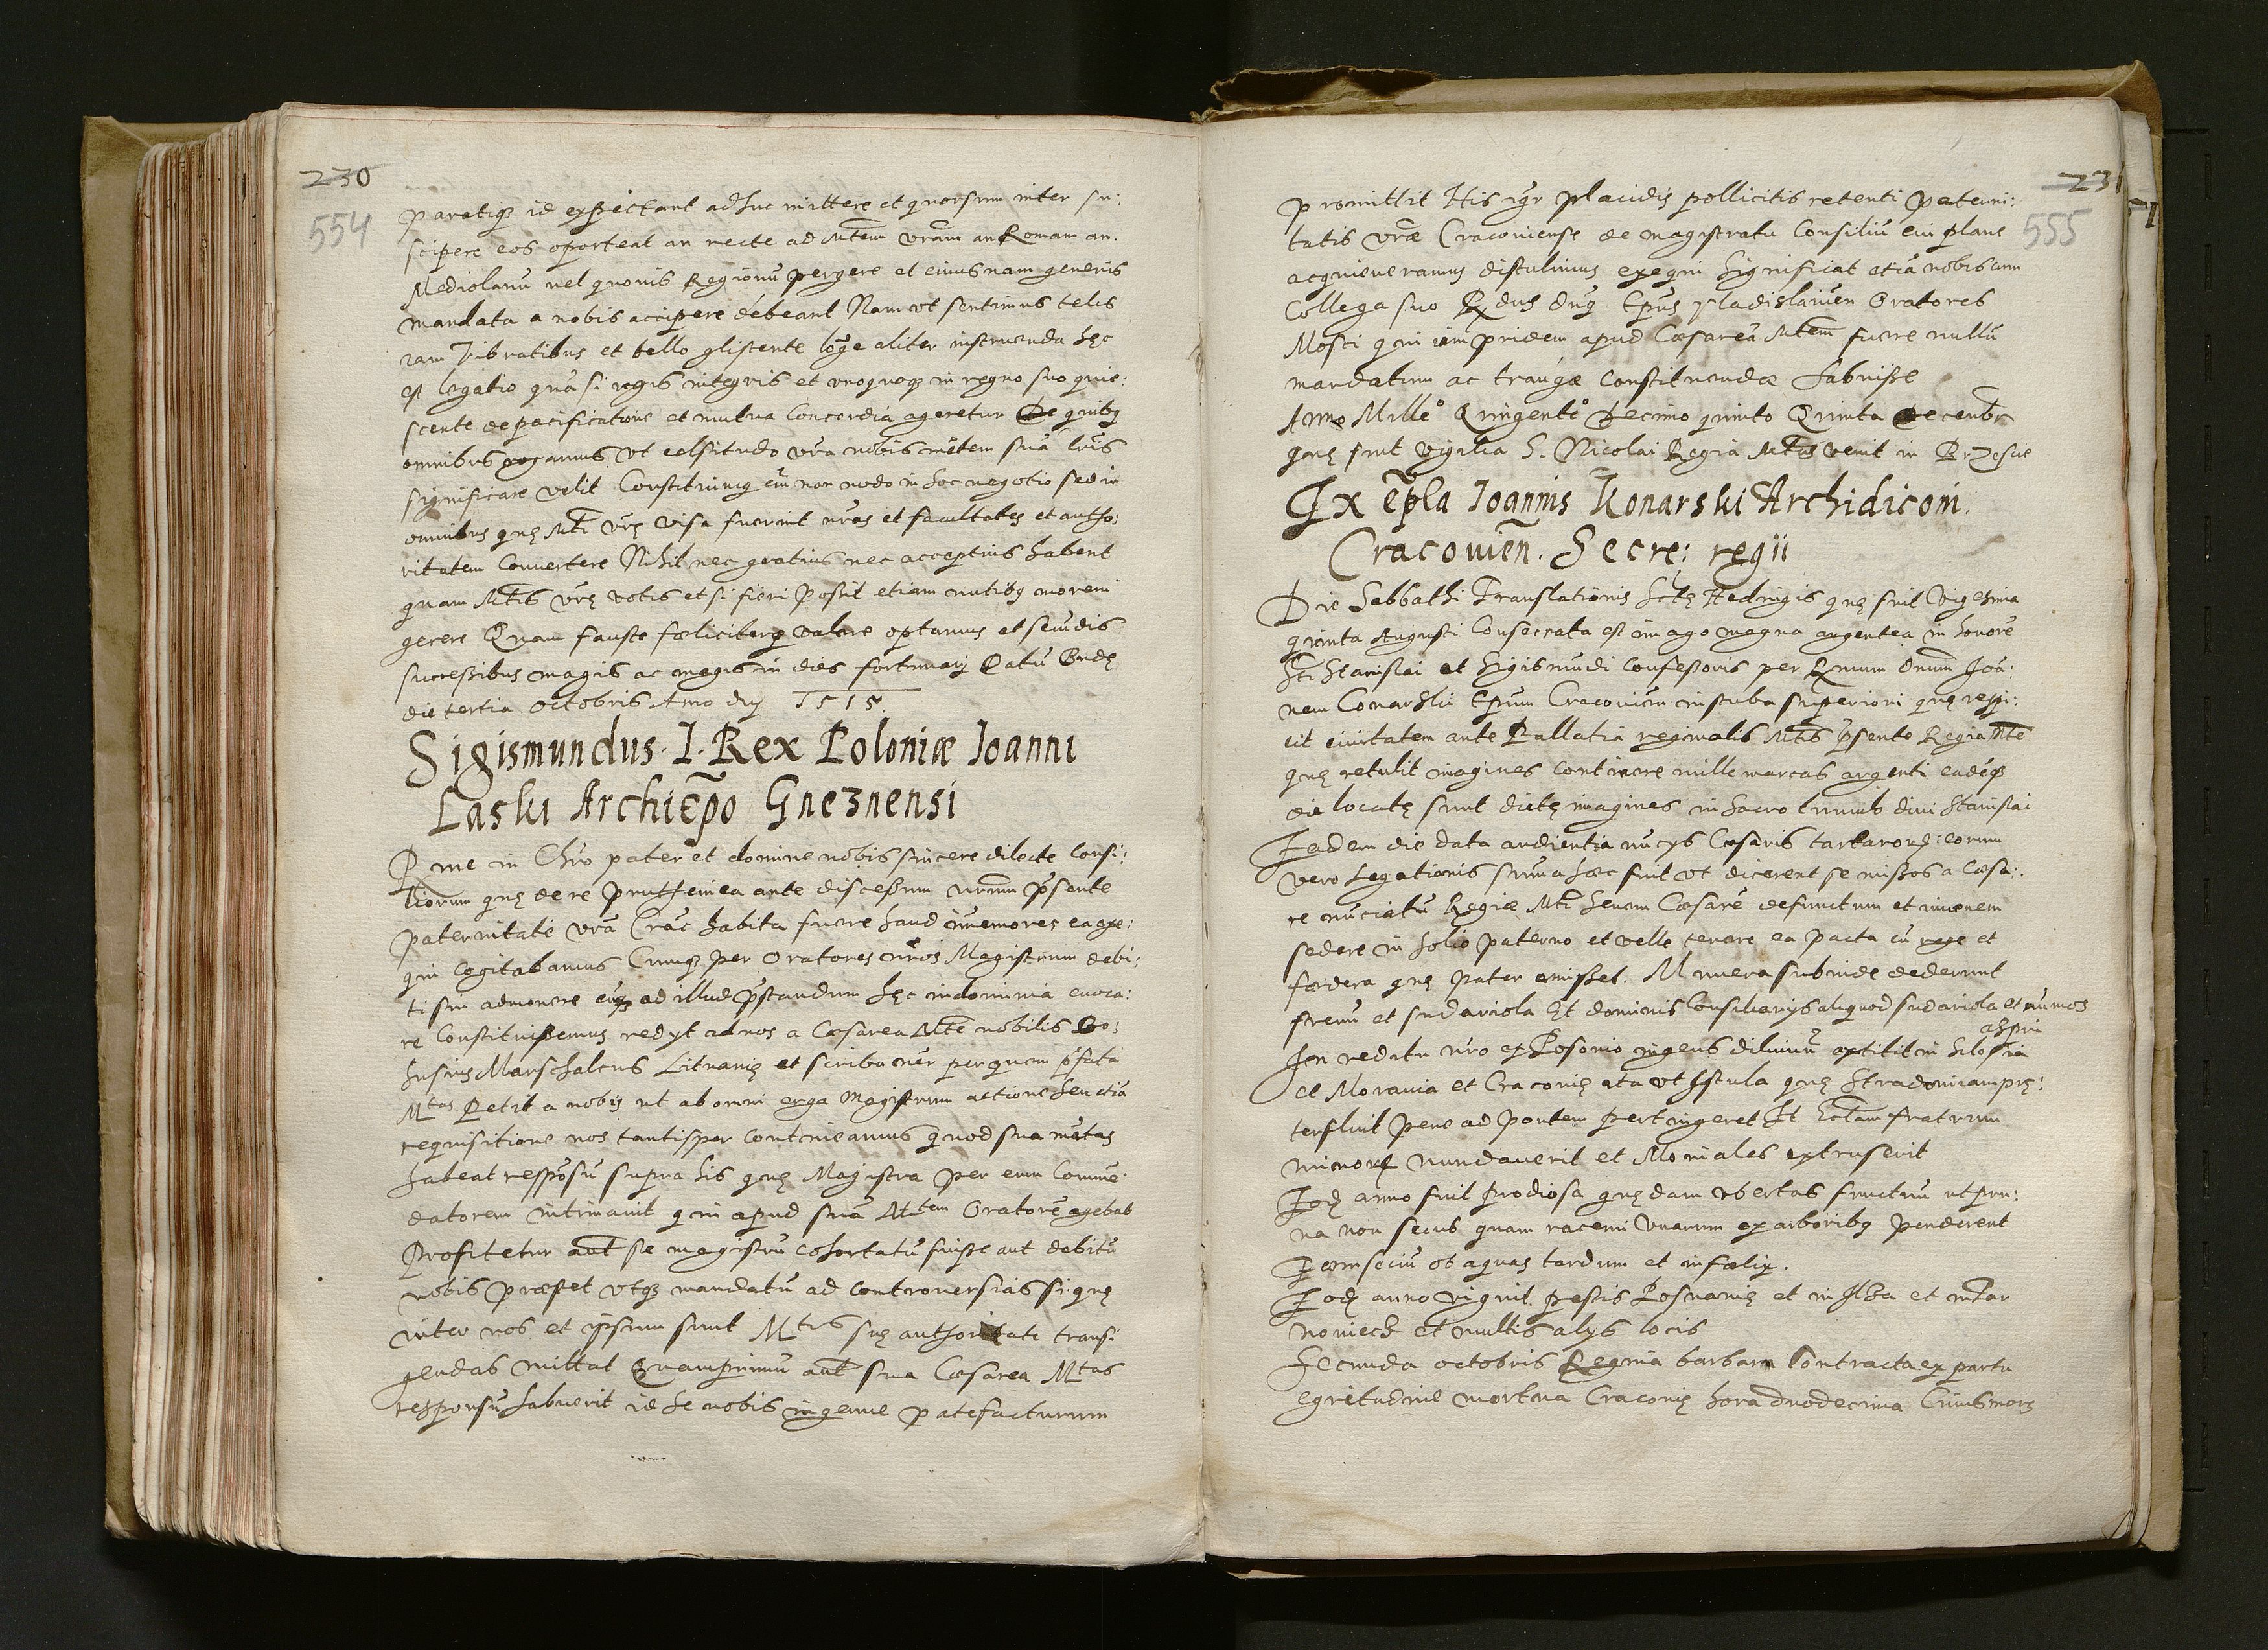 230
554
paratiq3 id expectant adhuc mittere et quorsum inter su:
scipere eos oporteat an recte ad Mtem vram an Romam an.
Mediolanu vel quouis Regionu pergere et cuiusnam generis
mandata a nobis accipere debeant Nam vt sentimus telis
iam vibratibus et bello gliscente loge aliter instruenda hęc
est legatio qua si regis integris et vnoquoq3 in regno suo quie:
scente de pacificatione et mutua concordia ageretur De quibq
omnibus rogamus vt celsitudo vra nobis metem sua
significare velit Constituimq eni non modo in hoc negotio sed in
omnibus quę Mti vrę visa fuerint nras et facultates et autho:
ritatem Conuertere Nihil nec gratius nec acceptius habent
quam Mtis vrę votis et si fieri possit etiam nutibq morem
gerere Quam fauste fœliciterq valere optamus et secudis
successibus magis ac magis in dies fortunarj Datu Budę
die tertia octobris Anno dnj 1515.
Sigismundus. I. Rex Poloniæ Ioanni
Laski Archiepo Gneznensi
Rme in Chro pater et domine nobis sincere dilecte Consi:
liorum quę de re pruthenica ante discessum nrum pnte
paternitate vra Crac habita fuere haud immemores ea exe:
qui cogitabamus Cumq3 per oratores nros Magistrum debi:
ti sui admonere eumq3 ad illud pstandum hęc indominia euoca:
re Constituissemus redyt ad nos a Cæsarea Mte nobilis Bo:
husius Marschalcus Lituanię et scriba ner per quem pfata
Mtas Petit a nobis ut ab omni erga Magistrum actione seu etia
requisitione nos tantisper Contineamus quod sua mtas
habeat resposu supra his quę Magistra per eum Comme:
datorem intimauit qui apud sua Mtem Oratore agebat
Profitetur aut se magistru cohortatu fuisse aut debitu
nobis præstet vtq3 mandatu ad controuersias si quę
inter nos et ipsum sunt Mtis suę authoritate transi
gendas mittat Quamprimu aut sua Cæsarea Mtas
responsu habuerit id se nobis ingenue patefacturum
231
555
promittit His igr placidis pollicitis retenti Paterni:
tatis vræ Cracouiense de magistratu Consiliu cui plane
acquieueramus distulimus exequi Significat etia nobis cum
Collega suo Rdus dnq Epus Vladislauien Oratores
Mosci qui iam pridem apud Cæsarea Mtem fuere nullu
mandatum ac treugæ Constituendæ habuisse
Anno Mille° Quingente° Decimo quinto Quinta Decembr
quę fuit vigilia S. Nicolai Regia Mtas venit in Brzescie
Ex epla Ioannis Konarski Archidiconi.
Cracouien. Secre: regii
Die Sabbathi Translationis Sctę Hedwigis quę fuit Vigesima
quinta Augusti Consecrata est imago magna argentea in honore
Sti Stanislai et Sigismudi Confessoris per Rmum dnum Joa:
nem Conarski Epum Cracouien in stuba superiori quę respi:
cit ciuitatem ante Pallatia reginalis Mtis psente Regia Mte
quę retulit imagines continere mille marcas argenti eadeq3
die locatę sunt dictę imagines in sacro tumulo diui Stanislai
Eadem die data audientia nucys Cæsaris tartarorum: eorum
vero Legationis suma hæc fuit vt dicerent se missos a Cæsa:
re nuciatu Regiæ Mti senem Cæsare defunctum et iuuenem
sedere in solio paterno et velle tenere ea pacta cu rege et
fœdera quę Pater emisset. Munera subinde dederunt
frenu et sudariola Et dominis Consiliarijs aliquod sudariola et numos
aspri
In reditu nro ex Posonio ingens diluuiu extitit in Silesia
et Morauia et Cracouię ita vt Istula quę Stradomiam prę:
terfluit pene ad pontem pertingeret Et Ectam fratrum
minorum nundauerit et Moniales extruserit
Eod anno fuit prodiosa quędam vbertas fructuu ut pru:
na non secus quam racemi vuarum ex arboribq penderent
Foenseciu ob aquas tardum et infœlix.
Eod anno viguit pestis Posnanię et in Ilza et in Tar
nouiech et multis alys locis
Secunda octobris Regina barbara Contracta ex partu
egritudine mortua Cracouię hora duodecima Cuius mors